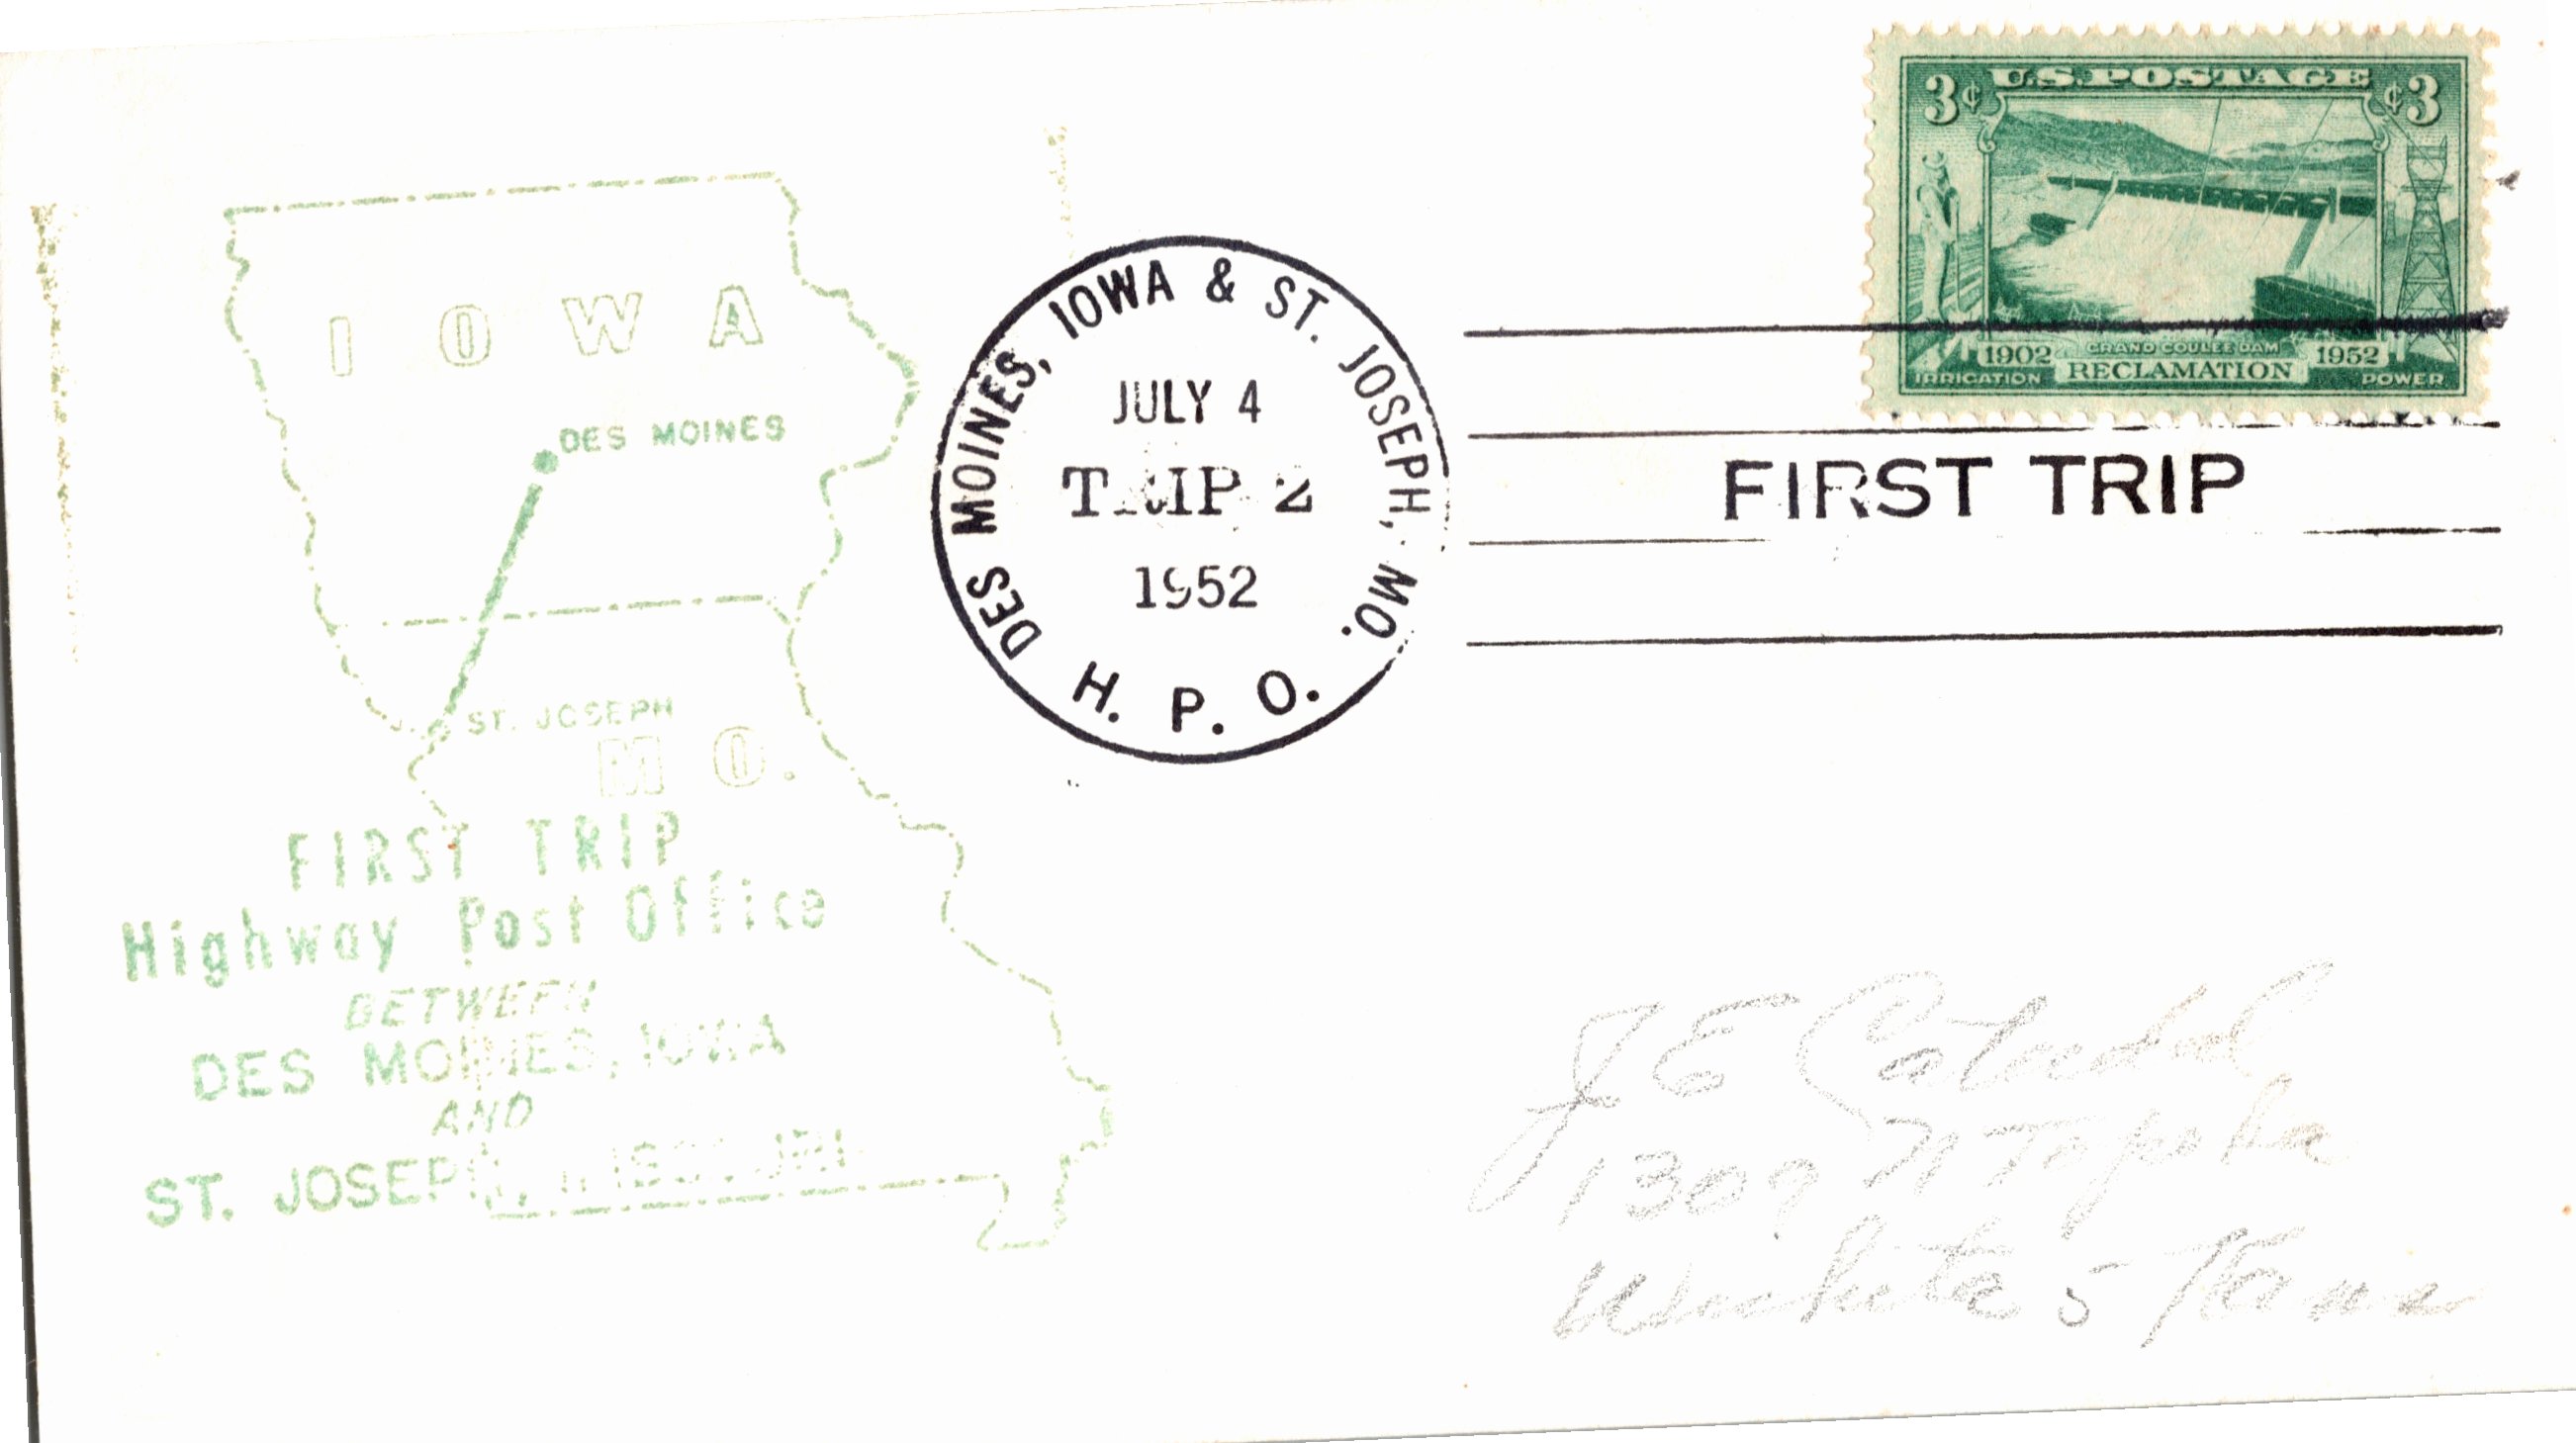 U.S. POSTAGE
3¢ ¢3
1902 GRAND COULEE DAM 1952
IRRIGATION RECLAMATION POWER
IOWA
DES MOINES
ST. JOSEPH
MO.
FIRST TRIP
Highway Post Office
BETWEEN
DES MOINES, IOWA
AND
ST. JOSEPH, MISSOURI
DES MOINES, IOWA & ST. JOSEPH, MO.
JULY 4
TRIP 2
1952
H. P. O.
FIRST TRIP
J E
1309 N Topeka
Wichita 5 Kans